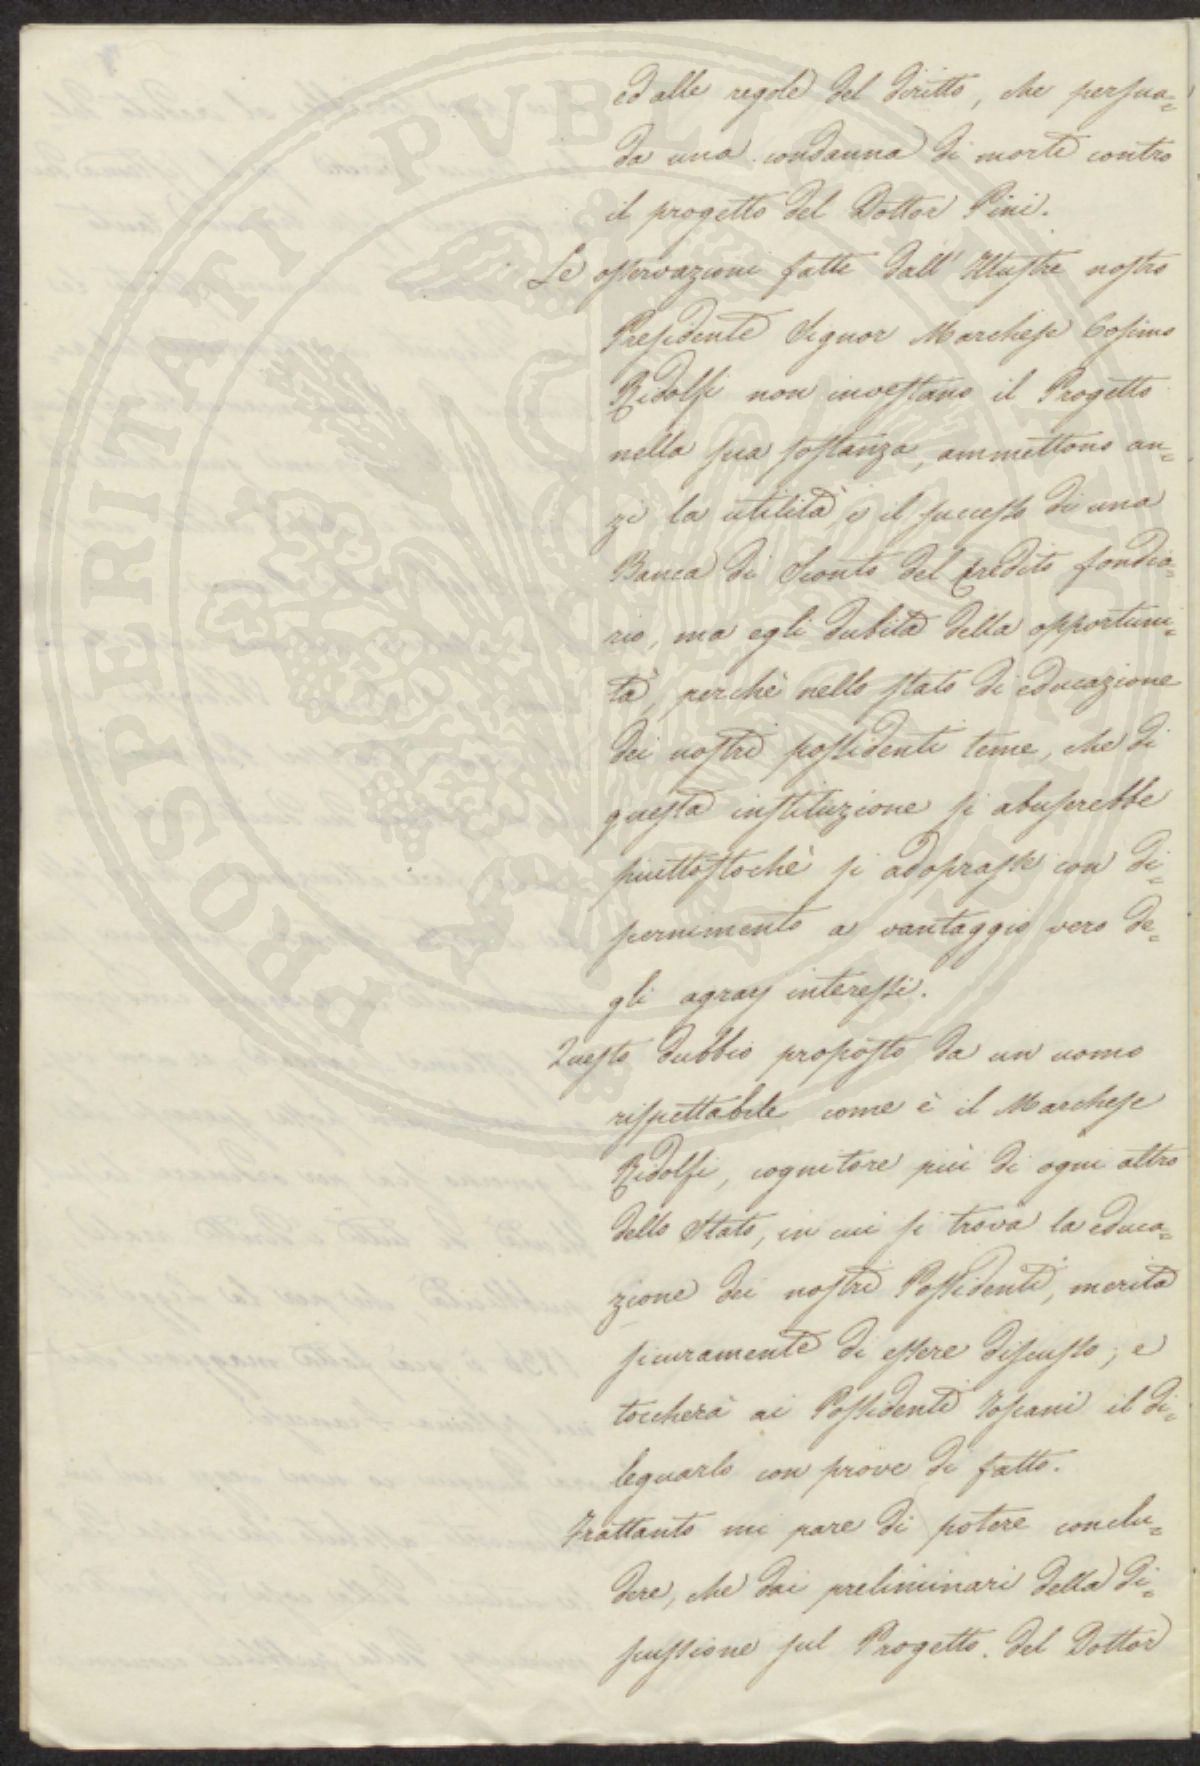 ed alle regole del diritto, che persua=
da una condanna di morte contro
il progetto del Dottor Pini.
Le osservazioni fatte dall' Illustre nostro
Presidente Signor Marchese Cosimo
Ridolfi non investano il Progetto
nella sua sostanza, ammettono an=
zi la utilità, e il successo di una
Banca di Sconto del Credito fondia=
rio, ma egli dubita della opportuni=
tà, perchè nello stato di educazione
dei nostri possidenti teme, che di
questa instituzione si abuserebbe
piuttostochè si adoprasse con di=
scernimento a vantaggio vero de=
gli agrarj interessi.
Questo dubbio proposto da un uomo
rispettabile come è il Marchese
Ridolfi, cognitore più di ogni altro
dello Stato, in cui si trova la educa=
zione dei nostri Possidenti, merita
sicuramente di essere discusso; e
toccherà ai Possidenti Toscani il di=
leguarlo con prove di fatto.
Frattanto mi pare di potere conclu=
dere, che dai preliminari della di=
scussione sul Progetto del Dottor
PROSPERITATI PUBLICAE